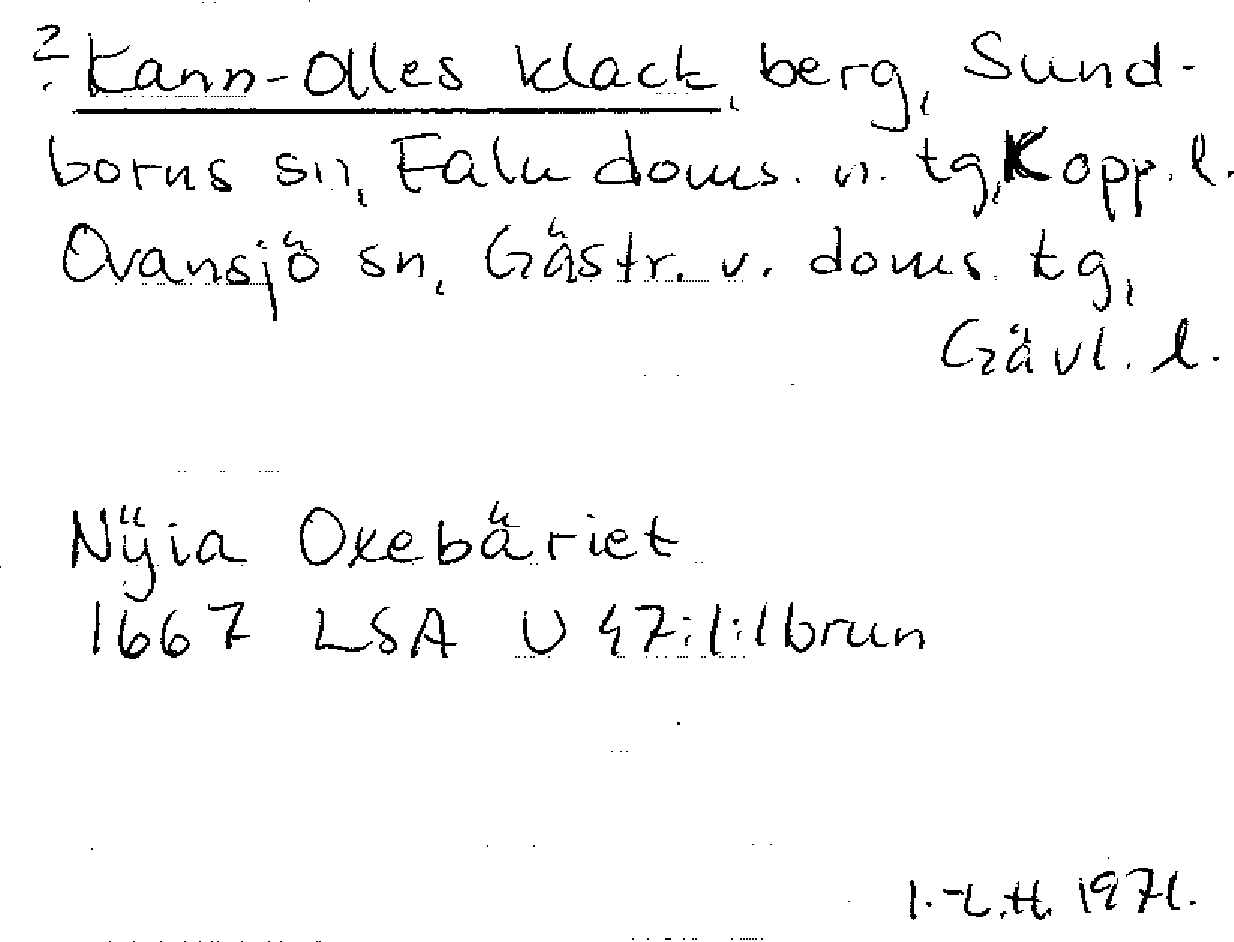 ? Kann-Olles klack, berg, Sund-
borns sn, Falu doms. n. tg, Kopp. l.
Ovansjö sn, Gästr. v. doms. tg,
Gävl. l.
Nÿia Oxebäriet
1667 LSA U 47:1:1 brun
I.-L.H. 1971.